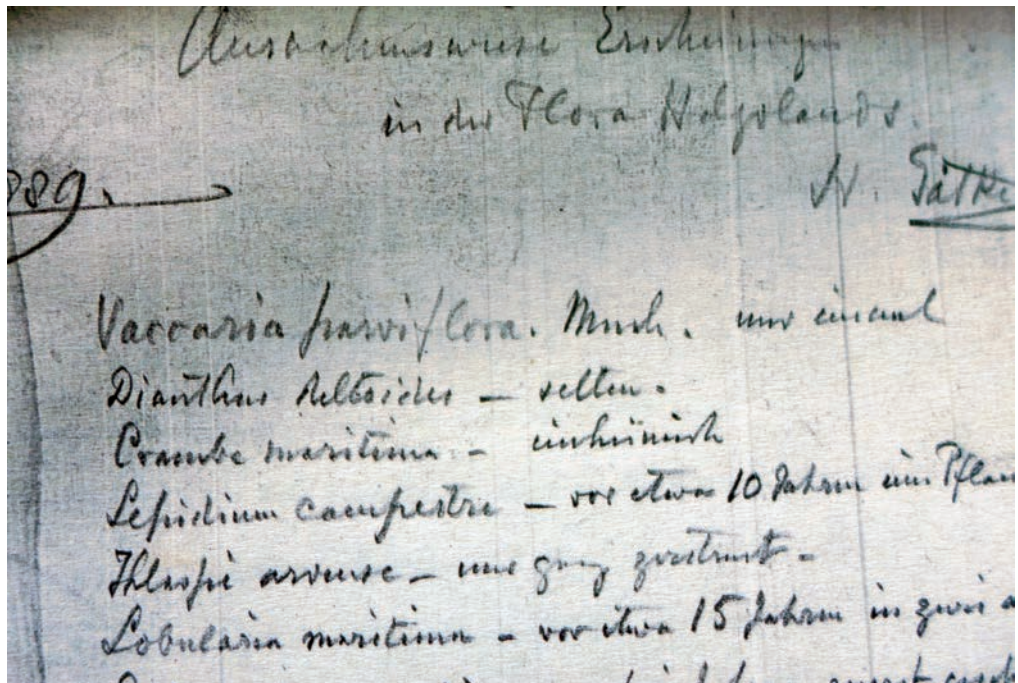 Ausnahmsweise Erscheinungen
in der Flora Helgolands.
889. H. Gätke
Vaccaria parviflora. Mnch. nur einmal
Dianthus deltoides – selten.
Crambe maritima – einheimisch
Lepidium campestre – vor etwa 10 Jahren ein Pflan
Thlaspi arvense – nur ganz zerstreut –
Lobularia maritima – vor etwa 15 Jahren in zwei